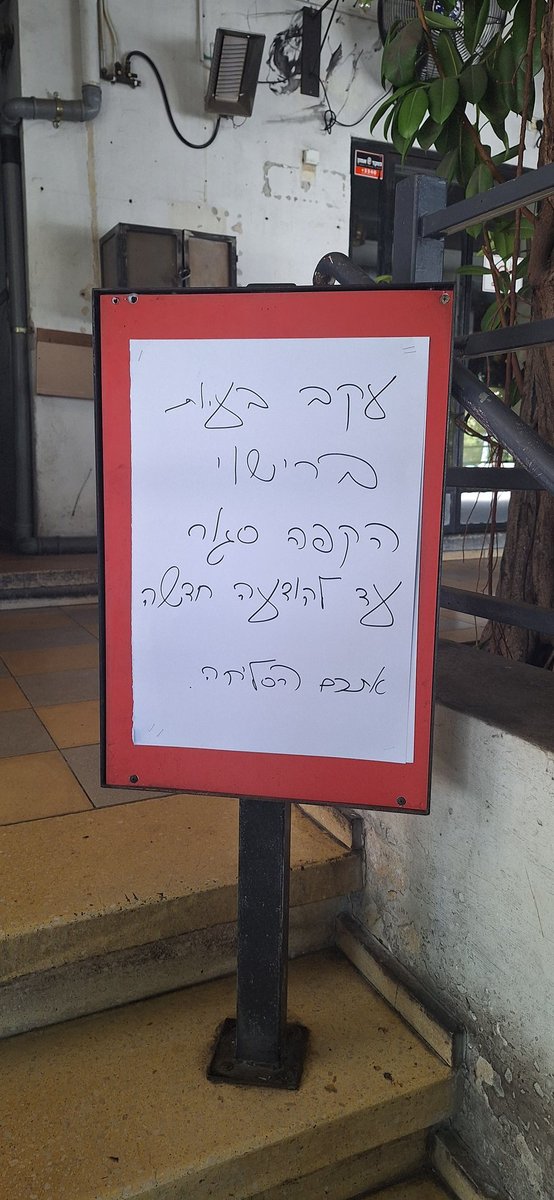 עקב בעיות
ברישוי
הקפה סגור
עד להודעה חדשה
אתכם הסליחה.